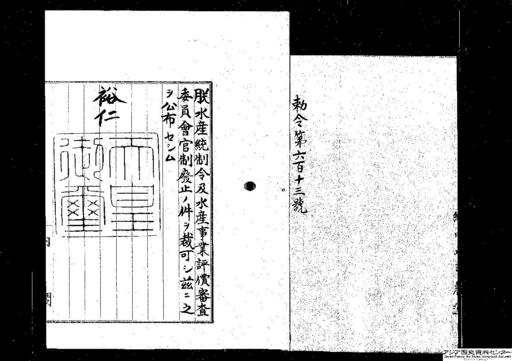 勅令第六百十三號
朕水産統制令及水産事業評價審査
委員會官制廢止ノ件ヲ裁可シ茲ニ之
ヲ公布セシム
裕仁
天皇
御璽
内閣
アジア歴史資料センター